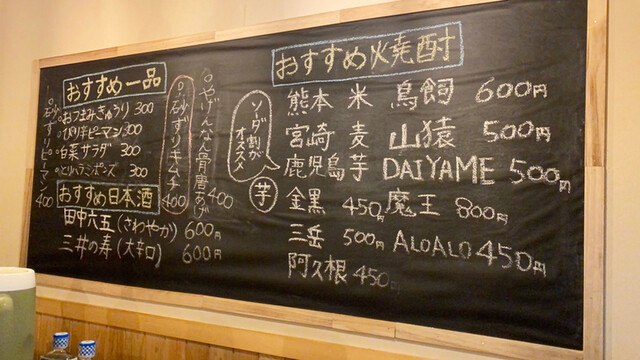 おすすめ一品
○おつまみきゅうり 300
○ぴり辛ピーマン 300
○白菜サラダ 300
○とりハラミポンズ 300
○砂ずりピーマン 400
○砂ずりキムチ 400
○やげんなん骨唐あげ 400
おすすめ日本酒
田中六五(さわやか) 600円
三井の寿(大辛口) 600円
おすすめ焼酎
ソーダ割が
オススメ
芋
熊本 米 鳥飼 600円
宮崎 麦 山猿 500円
鹿児島 芋 DAIYAME 500円
金黒 450円 魔王 800円
三岳 500円 ALOALO 450円
阿久根 450円